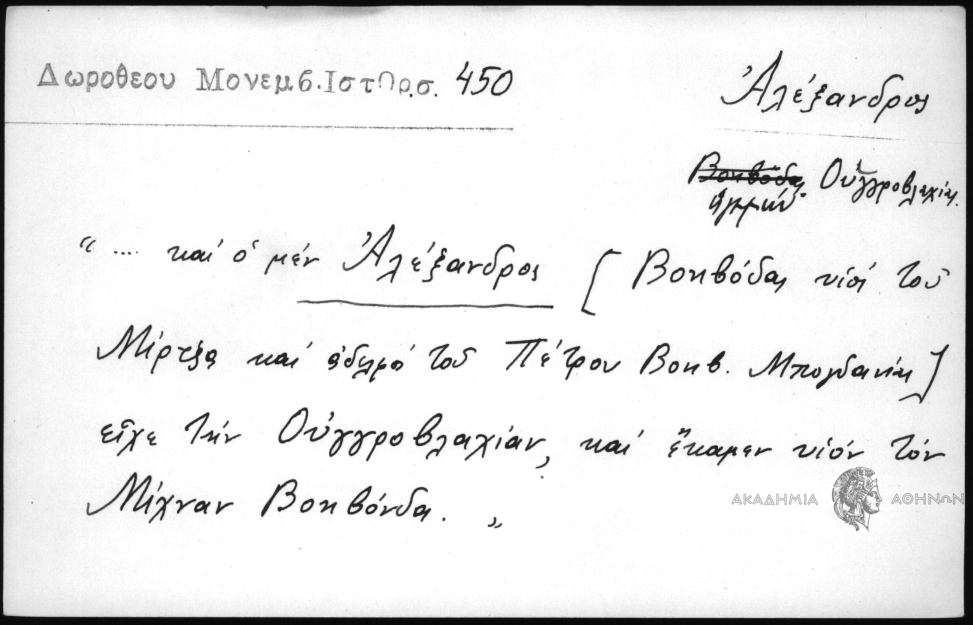 Δωροθεου Μονεμβ.Ιστορ.σ. 450
Ἀλέξανδρος
Βοηβόδας Οὐγγροβλαχίας
ἡγεμών
“ .... καί ὁ μέν Ἀλέξανδρος [ Βοηβόδας υἱός τοῦ
Μίρτζα καί ἀδελφός τοῦ Πέτρου Βοηβ. Μπογδανίας ]
εἶχε τήν Οὐγγροβλαχίαν, καί ἔκαμεν υἱόν τόν
Μίχναν Βοηβόνδα. „
ΑΚΑΔΗΜΙΑ ΑΘΗΝΩΝ